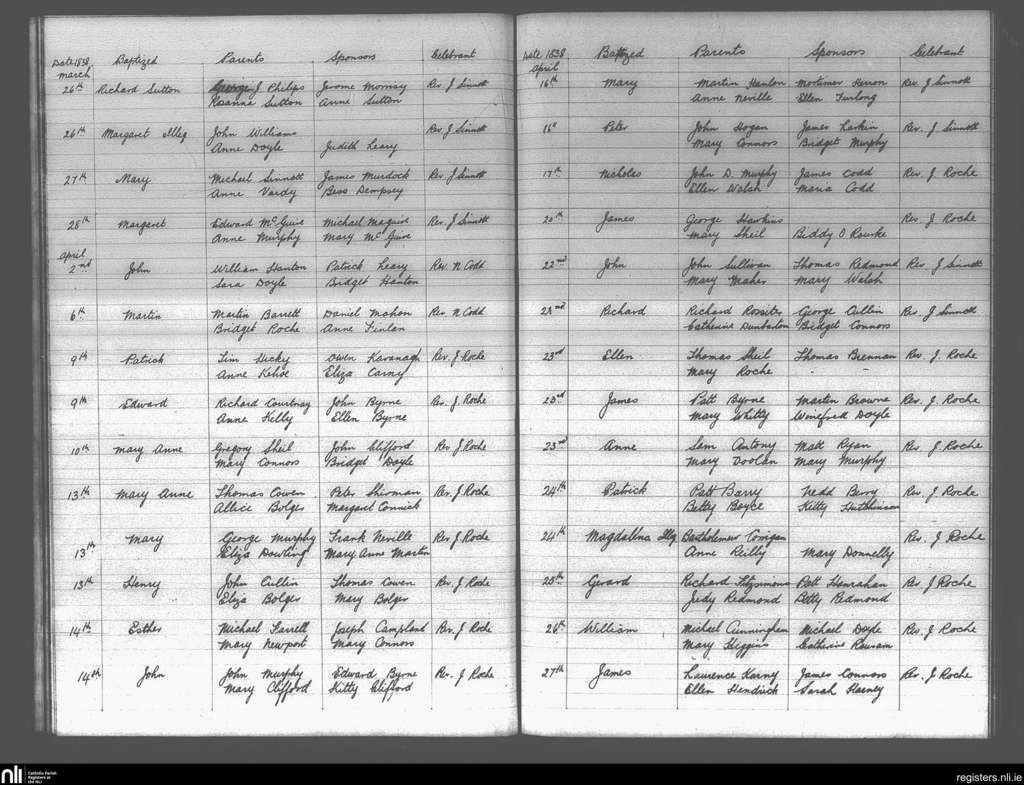 Date 1838 Baptized Parents Sponsors Celebrant
March
26th Richard Sutton George J Philips Jerome Morrisy Rev. J Sinnott
Roanna Sutton Anne Sutton
26th Margaret Illeg John Williams Rev. J Sinnott
Anne Doyle Judith Leary
27th Mary Michael Sinnott James Murdock Rev. J Sinnott
Anne Vardy Bess Dempsey
28th Margaret Edward McGuire Michael Maguire Rev. J Sinnott
Anne Murphy Mary McGuire
April
2nd John William Hanton Patrick Leary Rev. N Codd
Sara Doyle Bridget Hanton
6th Martin Martin Barrett Daniel Mahon Rev. N Codd
Bridget Roche Anne Finlan
9th Patrick Tim Hicky Owen Kavanagh Rev. J Roche
Anne Kehoe Eliza Carny
9th Edward Richard Courtnay John Byrne Rev. J. Roche
Anne Kelly Ellen Byrne
10th Mary Anne Gregory Sheil John Clifford Rev. J Roche
Mary Connors Bridget Doyle
13th Mary Anne Thomas Cowen Peter Shirman Rev. J Roche
Allice Bolger Margaret Connick
13th Mary George Murphy Frank Neville Rev. J Roche
Eliza Dowling Mary Anne Martin
13th Henry John Cullin Thomas Cowen Rev. J Roche
Eliza Bolger Mary Bolger
14th Esther Michael Farrell Joseph Camplant Rev. J Roche
Mary Newport Mary Connors
14th John John Murphy Edward Byrne Rev. J Roche
Mary Clifford Kitty Clifford
Date 1838 Baptized Parents Sponsors Celebrant
April
16th Mary Martin Hanton Mortimer Herron Rev. J Sinnott
Anne Neville Ellen Furlong
16" Peter John Hogan James Larkin Rev. J Sinnott
Mary Connors Bridget Murphy
17th Nicholas John D. Murphy James Codd Rev. J Roche
Ellen Walsh Maria Codd
20th James George Hawkins Rev. J Roche
Mary Sheil Biddy O Rourke
22nd John John Sullivan Thomas Redmond Rev. J Sinnott
Mary Maher Mary Walsh
22nd Richard Richard Rositer George Cullin Rev. J Sinnott
Catherine Dunbarton Bridget Connors
23rd Ellen Thomas Sheil Thomas Brennan Rev. J. Roche
Mary Roche - -
23rd James Patt Byrne Martin Browne Rev. J. Roche
Mary Whitty Winefred Doyle
23rd Anne Sam Antony Matt Ryan Rev. J Roche
Mary Doolan Mary Murphy
24th Patrick Patt Barry Nedd Berry Rev. J Roche
Betty Boyce Kitty Hutchinson
24th Magdalena Illeg Bartholemew Corrigan Rev. J Roche
Anne Reilly Mary Donnelly
25th Gerard Richard Fitzimmons Patt Hanrahan Rev J Roche
Judy Redmond Betty Redmond
26th William Michael Cunningham Michael Doyle Rev. J Roche
Mary Higgins Catherine
27th James Laurence Karny James Connors Rev. J Roche
Ellen Hendrick Sarah
nli Catholic Parish
Registers at
the NLI
registers.nli.ie